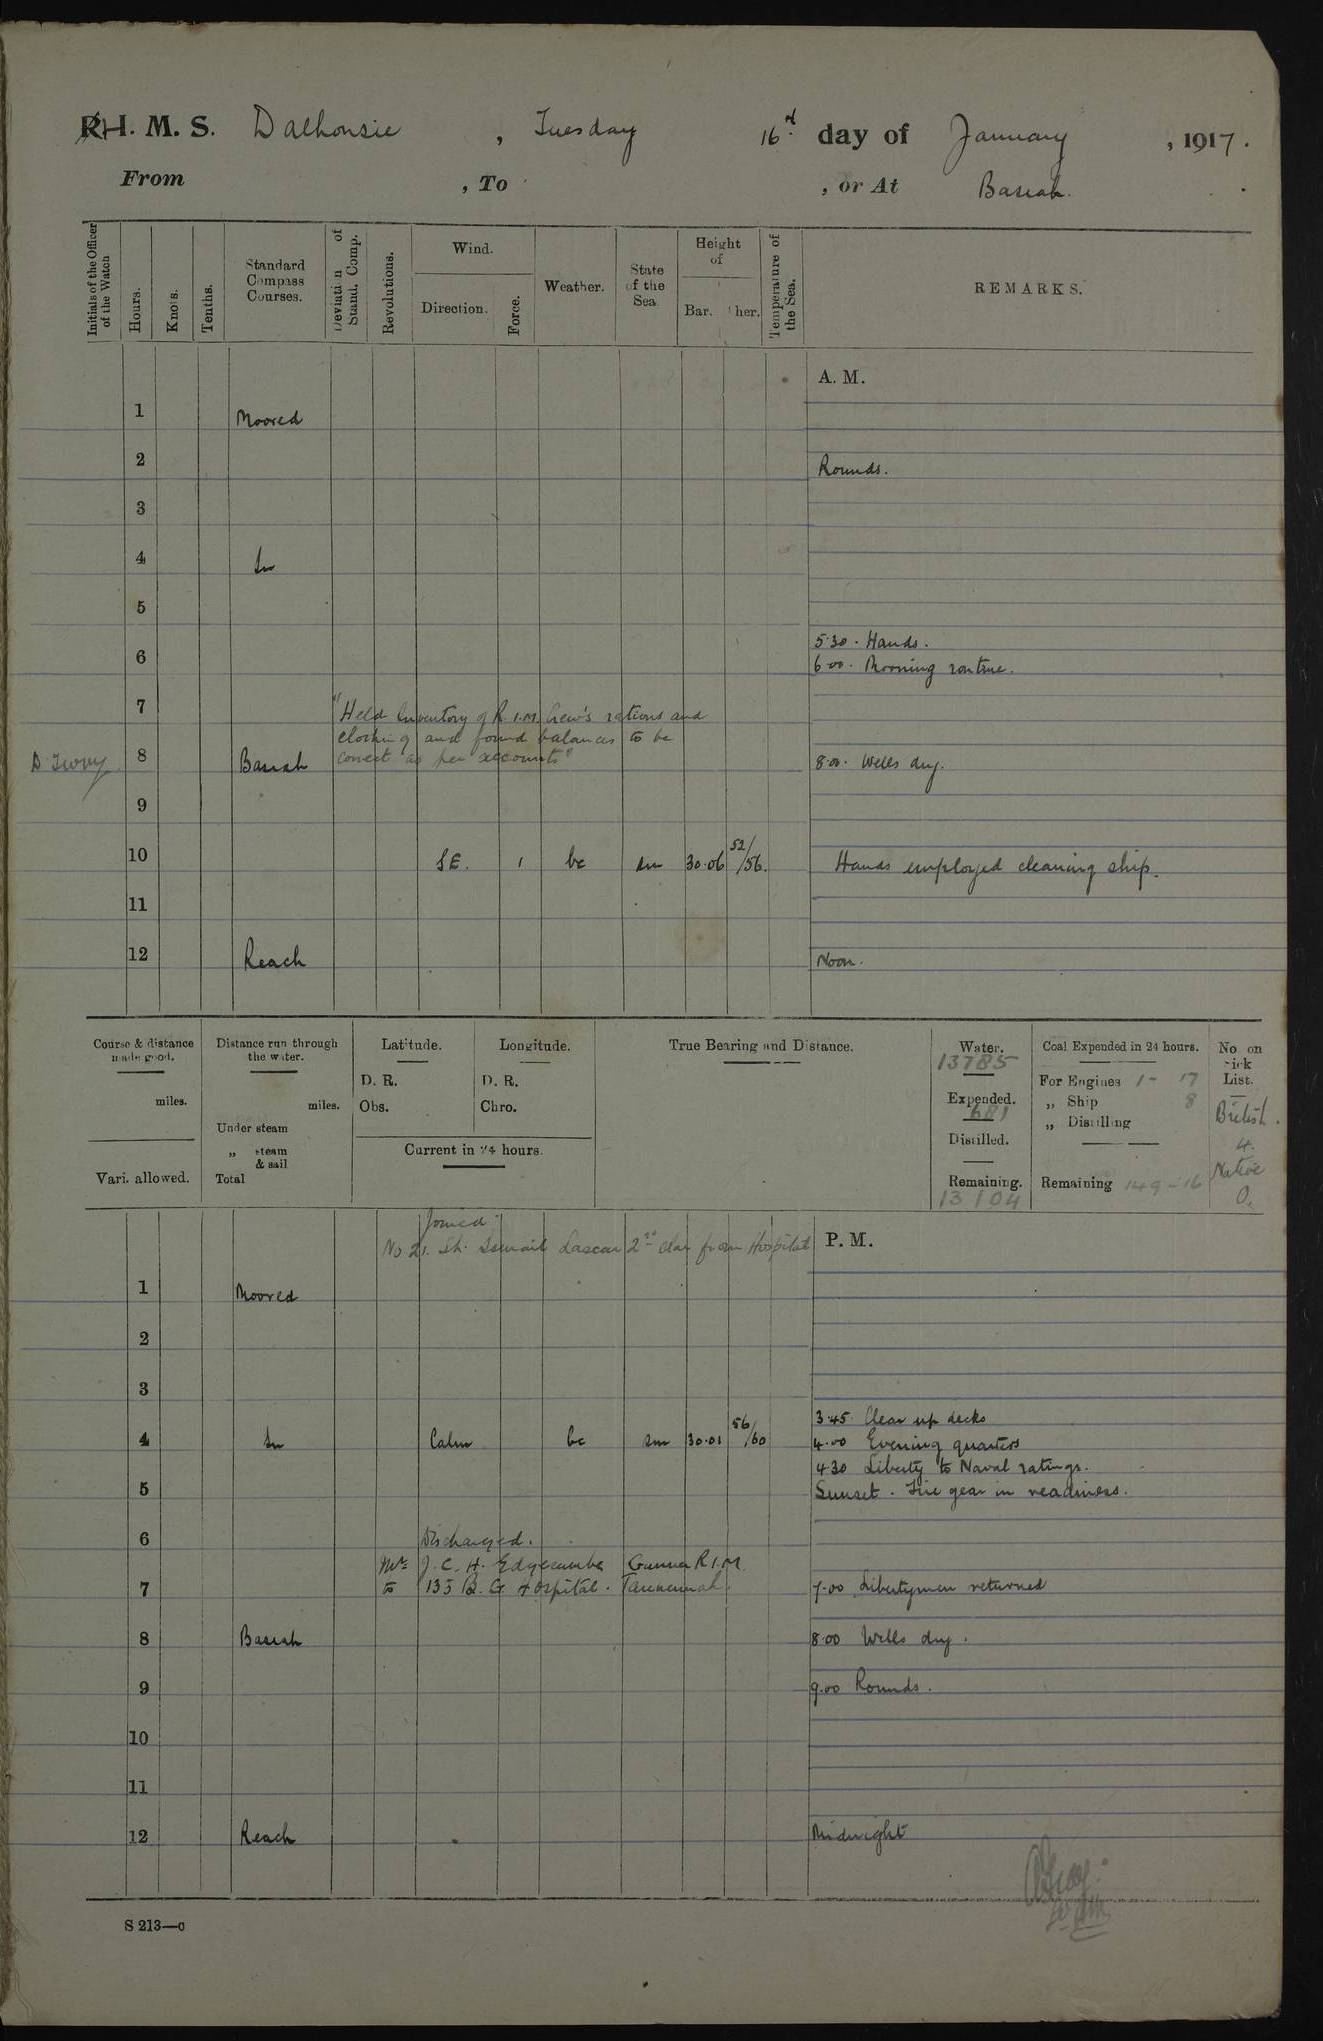 R.I.M.S. Dalhousie, Tuesday 16th day of January, 1917.
From , To , or At Basrah.
Initials of the Officer of the Watch
Hours.
Knots.
Tenths.
Standard Compass Courses.
Deviation of Stand. Comp.
Revolutions.
Wind.
Direction.
Force.
Weather.
State of the Sea
Height of
Bar. Ther.
Temperature of the Sea.
REMARKS.
A. M.
1 Moored
2 Rounds.
3
4 In
5
5.30. Hands.
6 6.00. Morning routine.
7
"Held Inventory of R.I.M. Crew's rations and
clothing and found balances to be
correct as per accounts"
8 Basrah 8.00. Wells dry.
9
10 S.E. 1 bc sm 30.06 52/56. Hands employed cleaning ship.
11
12 Reach Noon.
Course & distance made good.
miles.
Vari. allowed.
Distance run through the water.
miles.
Under steam
„ steam & sail
Total
Latitude.
D. R.
Obs.
Longitude.
D. R.
Chro.
Current in 24 hours.
True Bearing and Distance.
Water.
13785
Expended.
681
Distilled.
Remaining.
13104
Coal Expended in 24 hours.
For Engines 1 - 17
„ Ship 8
„ Distilling
Remaining 149 - 16
No on sick List.
British.
4.
Native
0.
Joined
No 21. Sh. Ismail Lascar 2nd Clas from Hospital
P. M.
1 Moored
2
3
3.45. Clear up decks
4 In Calm bc sm 30.01 56/60 4.00 Evening quarters
4.30 Liberty to Naval ratings.
5 Sunset. Fire gear in readiness.
6 Discharged.
Mr. J. C. H. Edgecumbe Gunner R.I.M.
7 to 133 B. G. Hospital. 7.00 Libertymen returned
8 Basrah 8.00 Wells dry.
9 9.00 Rounds.
10
11
12 Reach Midnight
S 213—c